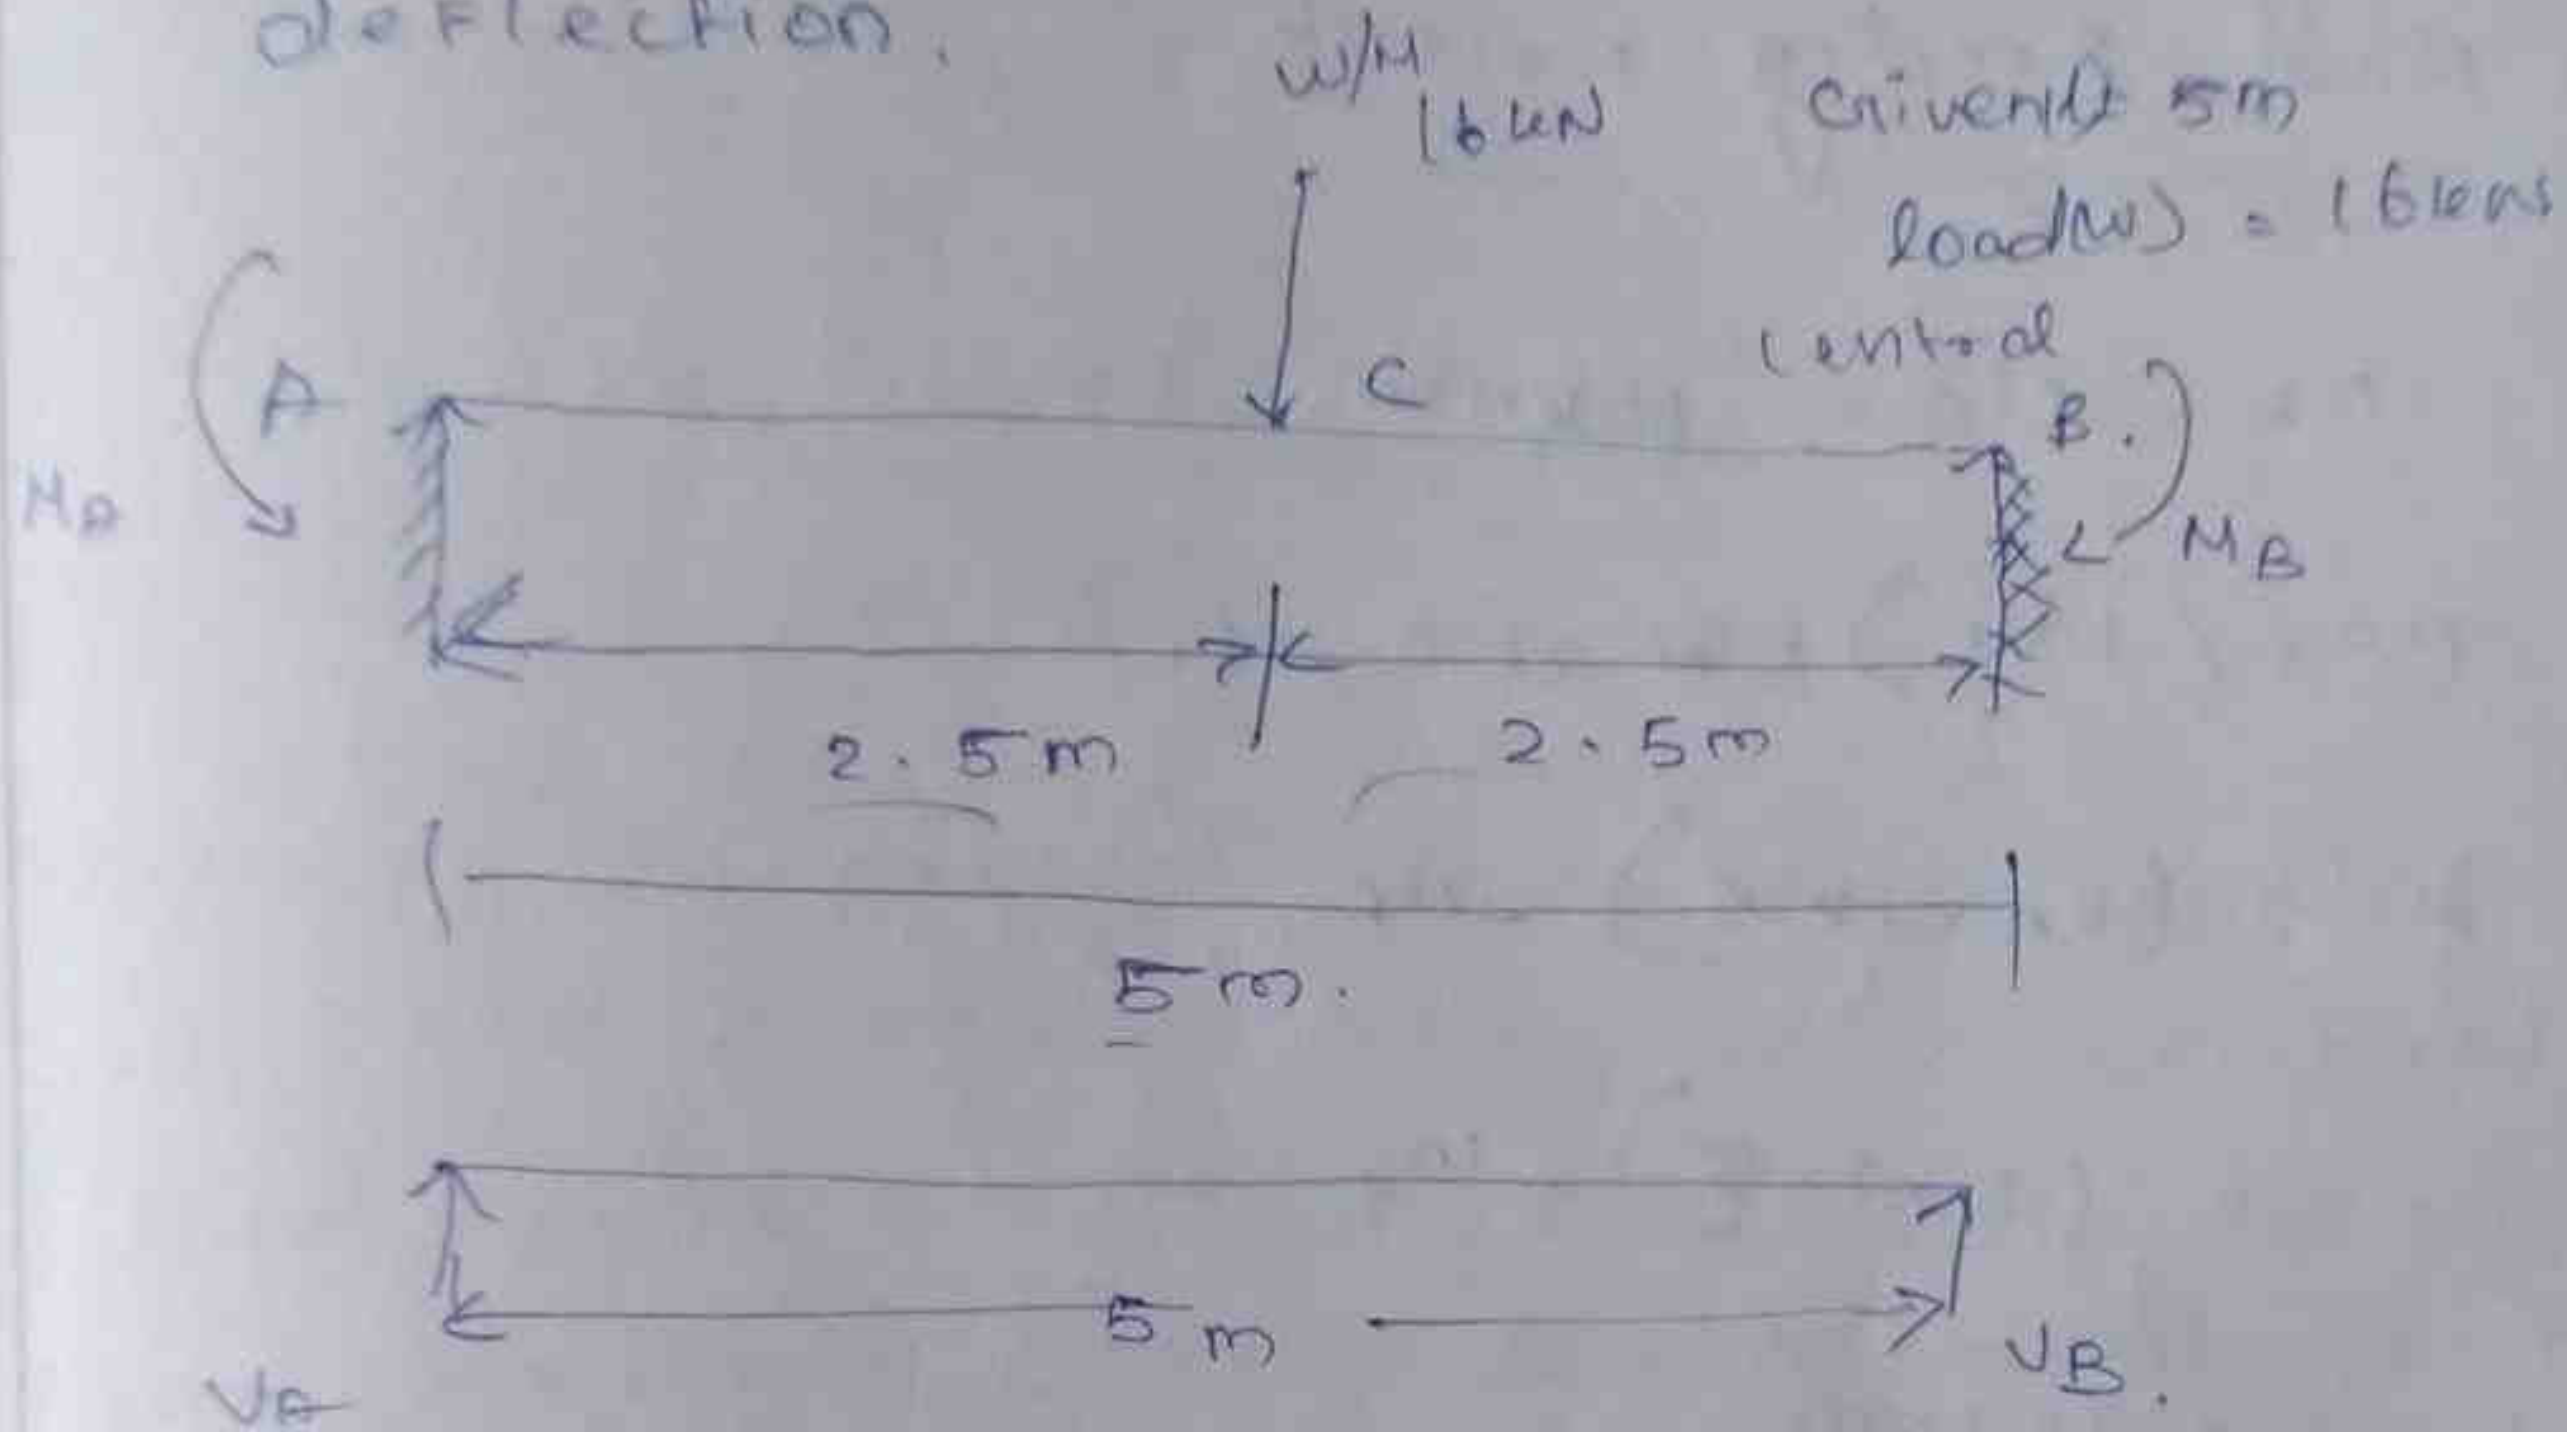 deflection.
W/M
16 kN
Given 5m
load(W) = 16 kN
Central
A
C
B.
MA
MB
2.5m
2.5m
5m.
5m
VA
VB.